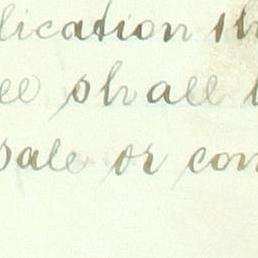 lication th
ee shall
sale or con